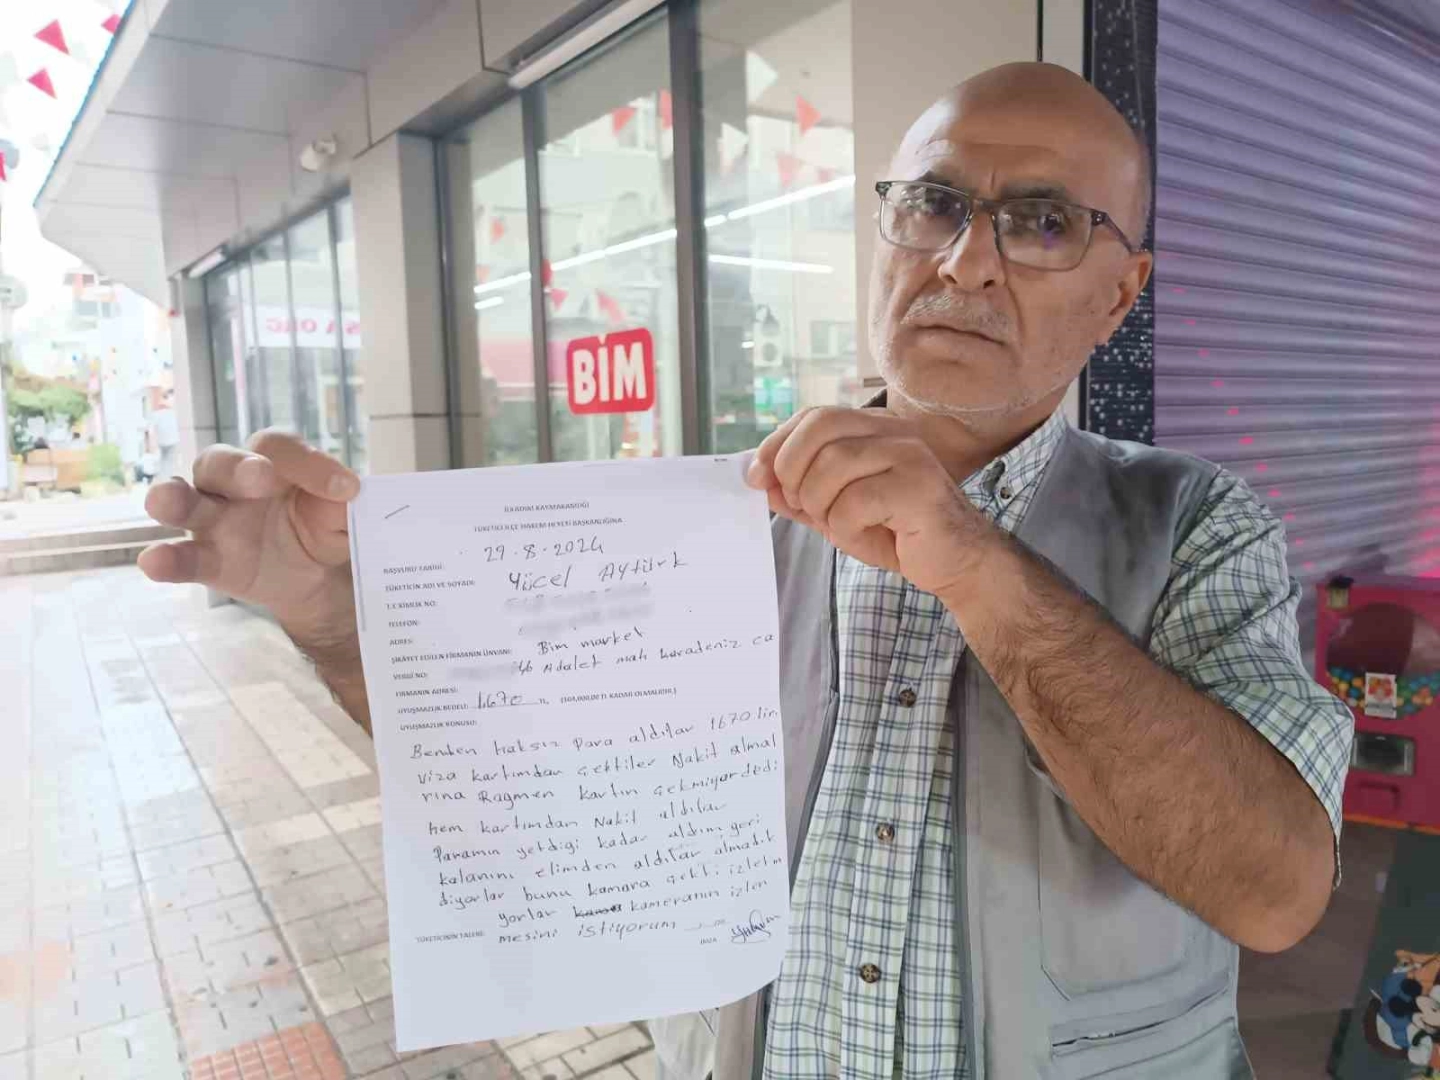 BİM
İLKADIM KAYMAKAMLIĞI
TÜKETİCİ İLÇE HAKEM HEYETİ BAŞKANLIĞINA
BAŞVURU TARİHİ: 29.8.2024
TÜKETİCİN ADI VE SOYADI: Yücel Aytürk
T.C KİMLİK NO:
TELEFON:
ADRES:
ŞİKAYET EDİLEN FİRMANIN ÜNVANI: Bim market
VERGİ NO:
FİRMANIN ADRESİ: Adalet mah karadeniz ca
UYUŞMAZLIK BEDELİ: 1670 TL
UYUŞMAZLIK KONUSU:
Benden haksız Para aldılar 1670 lir
Viza kartımdan çektiler Nakit almal
rına Rağmen kartın çekmiyor dedi
hem kartımdan Nakit aldılar
Paramın yetdiği kadar aldım geri
kalanını elimden aldılar almadık
diyorlar bunu kamara çekti izletm
yorlar kameranın izlen
TÜKETİCİNİN TALEBİ: mesini istiyorum
İMZA